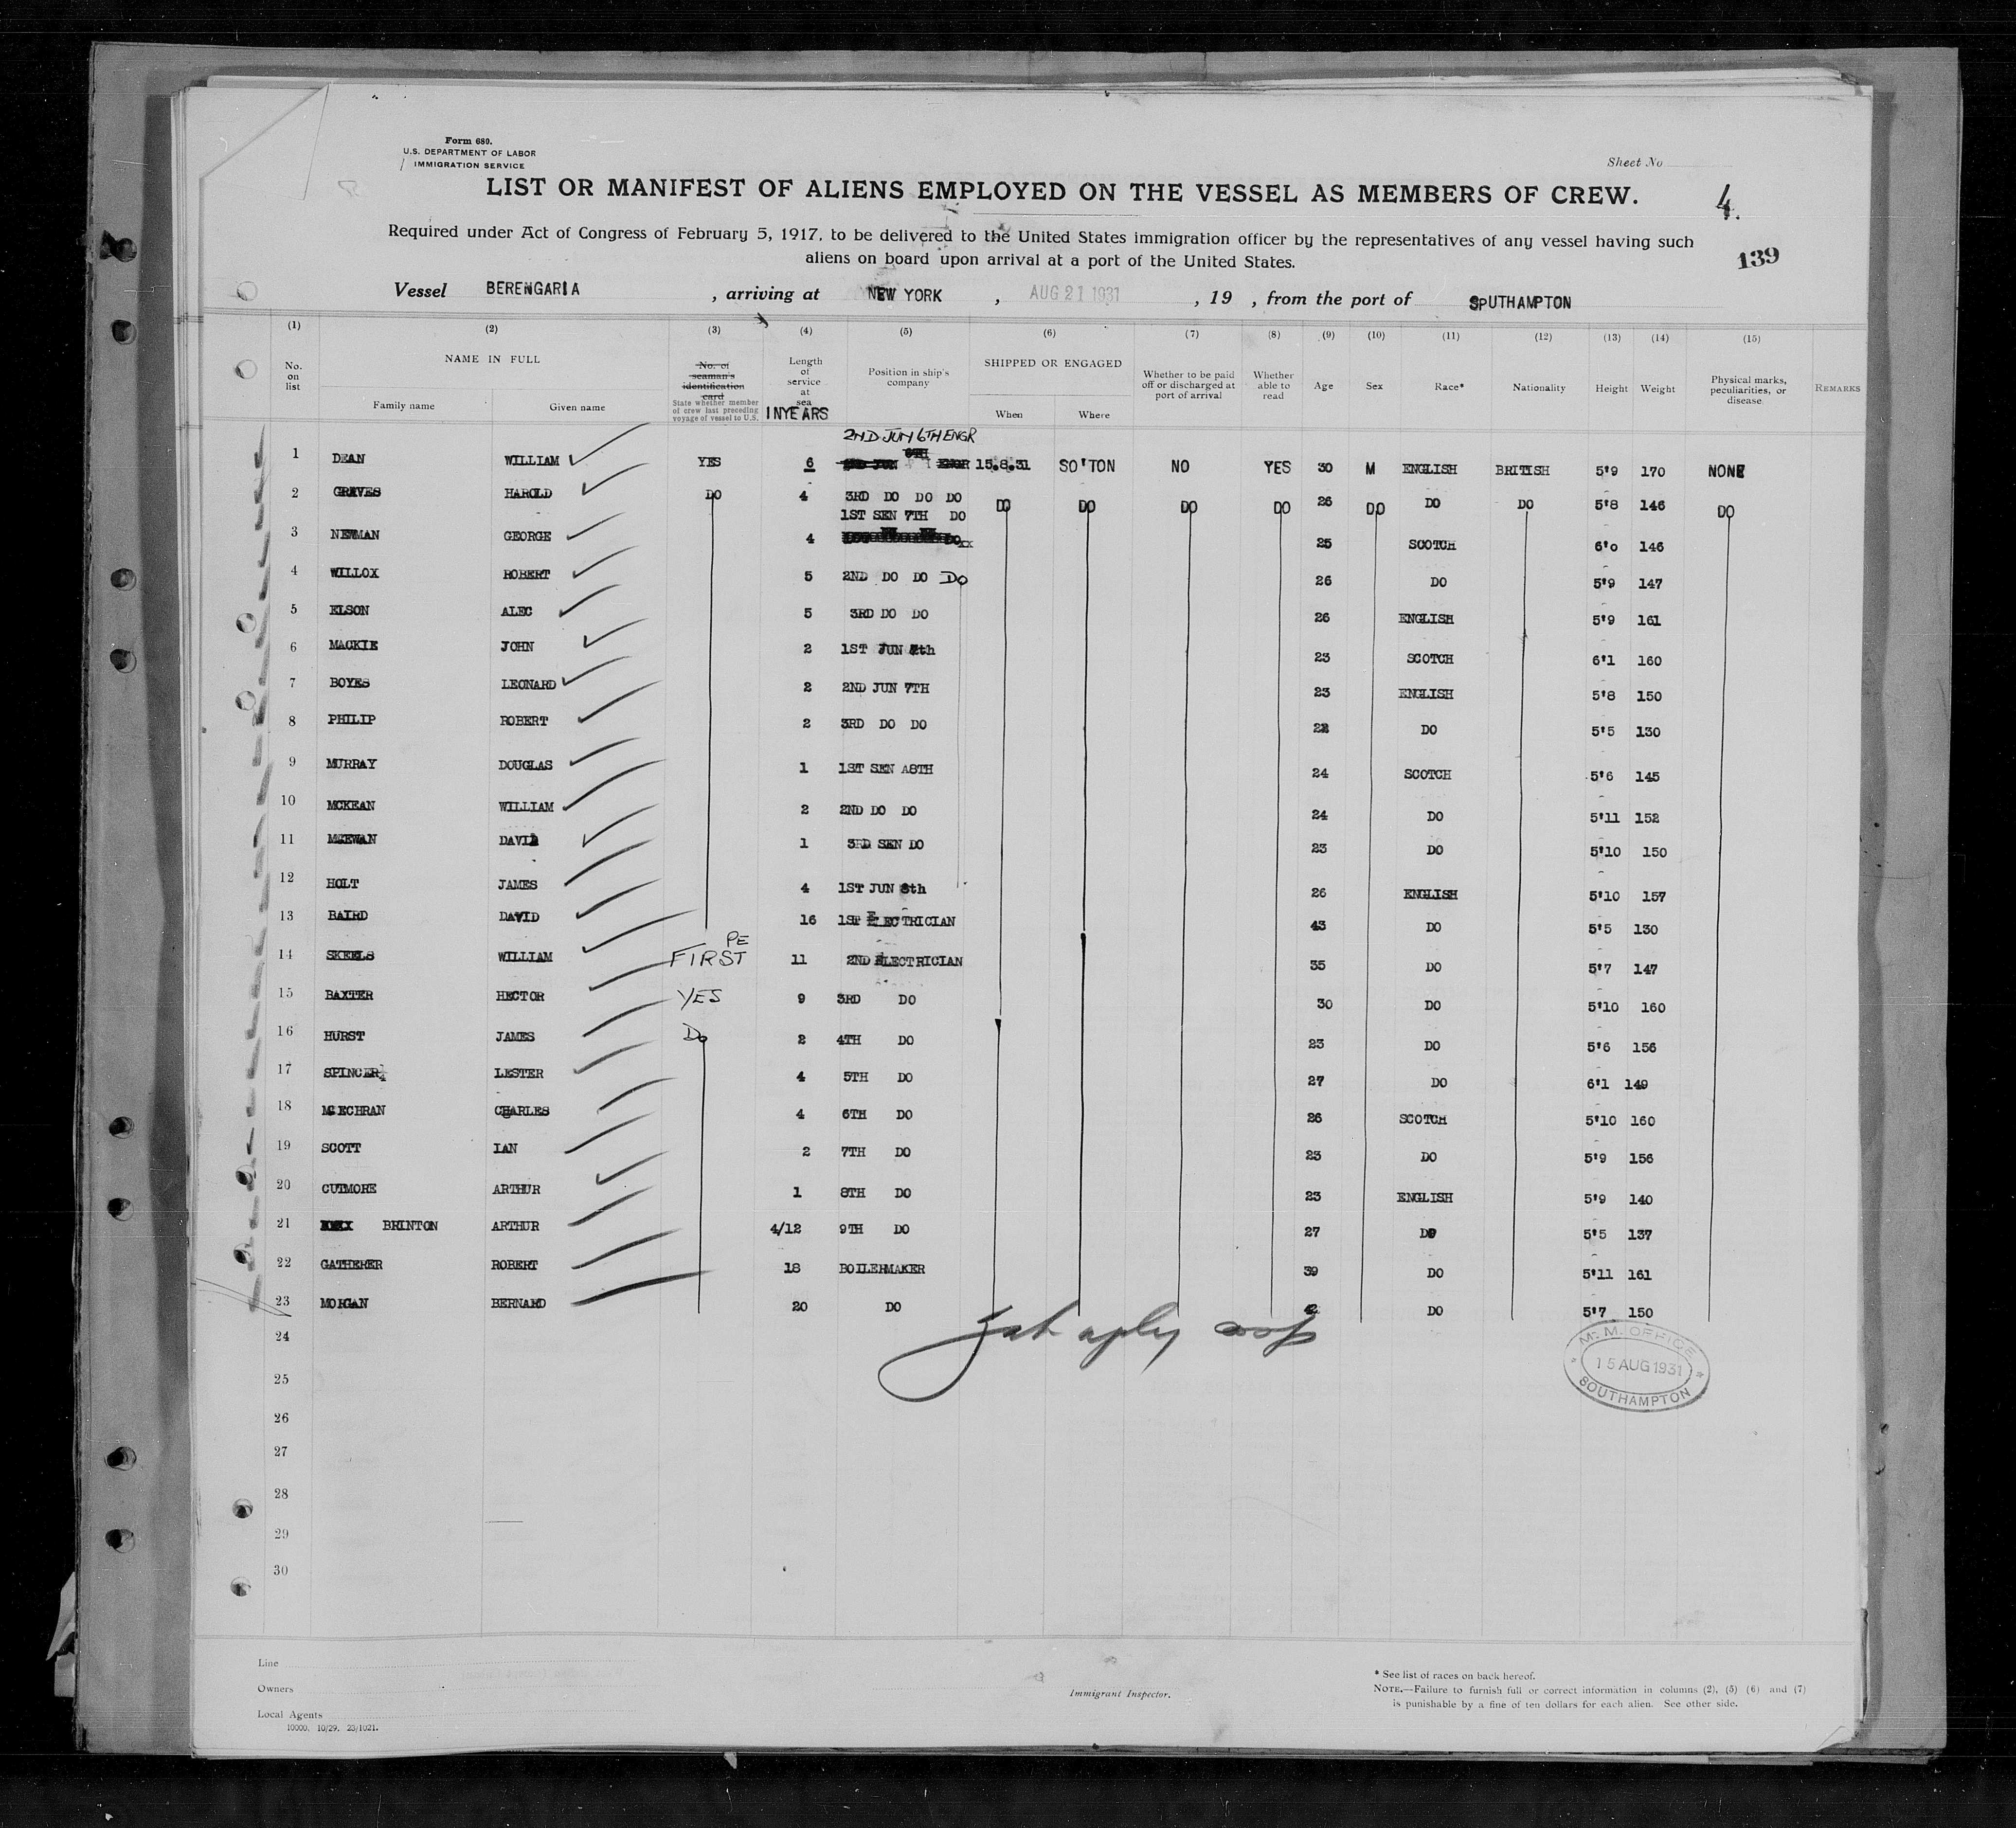 Form 680.
U.S. DEPARTMENT OF LABOR
IMMIGRATION SERVICE
Sheet No
LIST OR MANIFEST OF ALIENS EMPLOYED ON THE VESSEL AS MEMBERS OF CREW.
4.
Required under Act of Congress of February 5, 1917, to be delivered to the United States immigration officer by the representatives of any vessel having such
aliens on board upon arrival at a port of the United States.
139
Vessel BERENGARIA , arriving at NEW YORK , AUG 21 1931 , 19 , from the port of SPUTHAMPTON
(1) (2) (3) (4) (5) (6) (7) (8) (9) (10) (11) (12) (13) (14) (15)
No. on list
NAME IN FULL
Family name
Given name
No. of seaman's identification card
State whether member of crew last preceding voyage of vessel to U.S.
Length of service at sea
INYEARS
Position in ship's company
SHIPPED OR ENGAGED
When
Where
Whether to be paid off or discharged at port of arrival
Whether able to read
Age
Sex
Race*
Nationality
Height
Weight
Physical marks, peculiarities, or disease
REMARKS
2ND JUN 6TH ENGR
1 DEAN WILLIAM YES 6 15.8.31 SO'TON NO YES 30 M ENGLISH BRITISH 5'9 170 NONE
2 GRAVES HAROLD DO 4 3RD DO DO DO DO DO DO DO 26 DO DO DO 5'8 146 DO
1ST SEN 7TH DO
3 NEWMAN GEORGE 4 25 SCOTCH 6'0 146
4 WILLOX ROBERT 5 2ND DO DO DO 26 DO 5'9 147
5 ELSON ALEC 5 3RD DO DO 26 ENGLISH 5'9 161
6 MACKIE JOHN 2 1ST JUN 7th 23 SCOTCH 6'1 160
7 BOYES LEONARD 2 2ND JUN 7TH 23 ENGLISH 5'8 150
8 PHILIP ROBERT 2 3RD DO DO 22 DO 5'5 130
9 MURRAY DOUGLAS 1 1ST SEN A8TH 24 SCOTCH 5'6 145
10 MCKEAN WILLIAM 2 2ND DO DO 24 DO 5'11 152
11 MCEWAN DAVID 1 3RD SEN DO 23 DO 5'10 150
12 HOLT JAMES 4 1ST JUN 8th 26 ENGLISH 5'10 157
13 BAIRD DAVID 16 1ST ELECTRICIAN 43 DO 5'5 130
14 SKEELS WILLIAM PE FIRST 11 2ND ELECTRICIAN 35 DO 5'7 147
15 BAXTER HECTOR YES 9 3RD DO 30 DO 5'10 160
16 HURST JAMES Do 2 4TH DO 23 DO 5'6 156
17 SPINCER LESTER 4 5TH DO 27 DO 6'1 149
18 MCECHRAN CHARLES 4 6TH DO 26 SCOTCH 5'10 160
19 SCOTT IAN 2 7TH DO 23 DO 5'9 156
20 CUTMORE ARTHUR 1 8TH DO 23 ENGLISH 5'9 140
21 BRINTON ARTHUR 4/12 9TH DO 27 DO 5'5 137
22 GATHERER ROBERT 18 BOILERMAKER 39 DO 5'11 161
23 MORGAN BERNARD 20 DO 42 DO 5'7 150
24
25
26
27
28
29
30
M. M. OFFICE
15 AUG 1931
SOUTHAMPTON
Line
Owners
Local Agents
10000. 10/29. 23/1021.
Immigrant Inspector.
* See list of races on back hereof.
NOTE.—Failure to furnish full or correct information in columns (2), (5) (6) and (7)
is punishable by a fine of ten dollars for each alien. See other side.